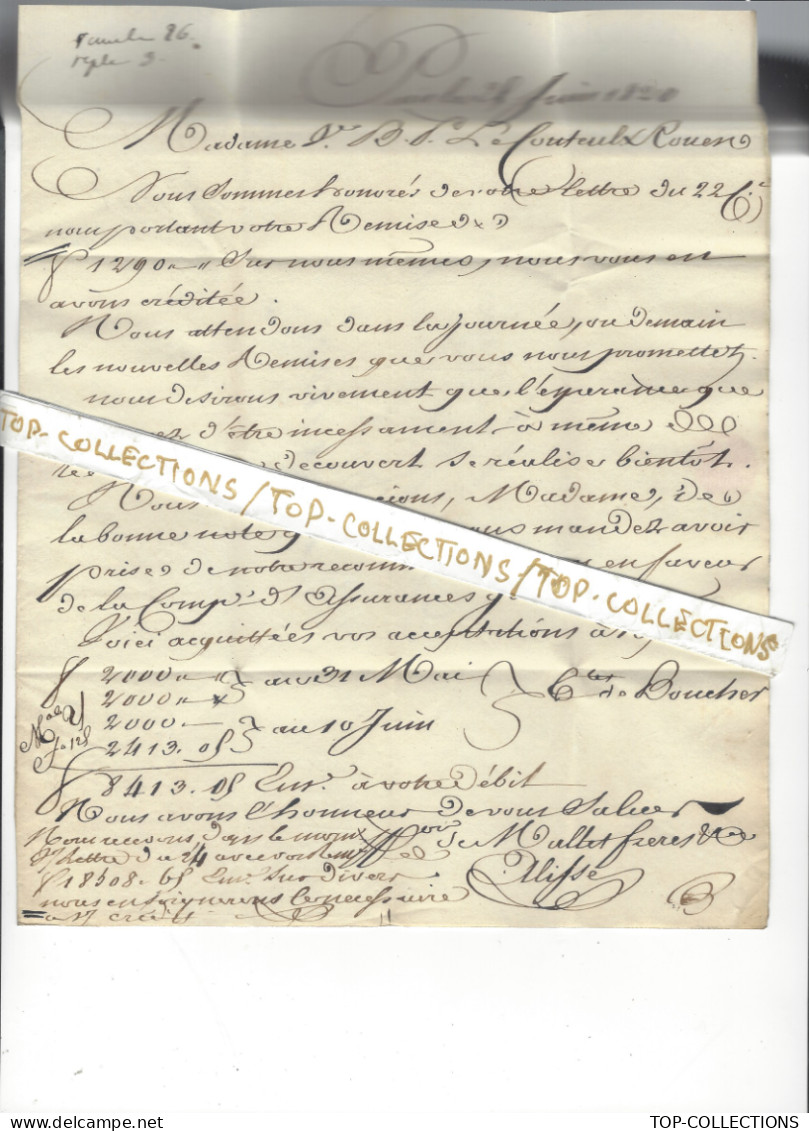 Juin 1820
Madame Ve. B. Le Couteulx Rouen
Nous sommes honorés de votre lettre du 22 Ct
nous portant votre Remise de
ƒ 1290 " Sur nous mêmes, nous vous en
avons créditée.
Nous attendons dans la journée, ou demain
les nouvelles Remises que vous nous promettez.
nous desirons vivement que l'espérance que
d'être incessament à même de
decouvert se réalise bientôt.
Nous Madame, de
la bonne note vous mandez avoir
prise de notre en faveur
de la Compe. d'Assurances
Voici acquittées vos acceptations à
ƒ 2000 " au 31 Mai
2000 "
2000 — au 10 Juin
2413. 05
Ctes de Boucher
8413. 05 Ense. à votre débit
Nous avons l'honneur de vous Saluer
Mallet freres & Cie
Nous recevons dans le moment
Ve lettre du 24 avec votre
ƒ 18508. 65 Ense. Sur divers
nous en soignerons le necessaire
a Ve crédit
TOP-COLLECTIONS / TOP-COLLECTIONS / TOP-COLLECTIONS
TOP-COLLECTIONS